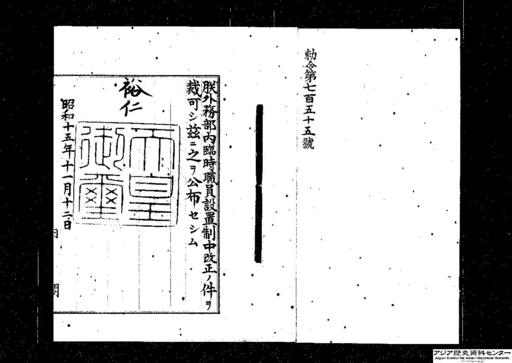 勅令第七百五十五號
朕外務部內臨時職員設置制中改正ノ件ヲ
裁可シ茲ニ之ヲ公布セシム
裕仁
天皇御璽
昭和十五年十一月十二日
内閣
アジア歴史資料センター
Japan Center for Asian Historical Records